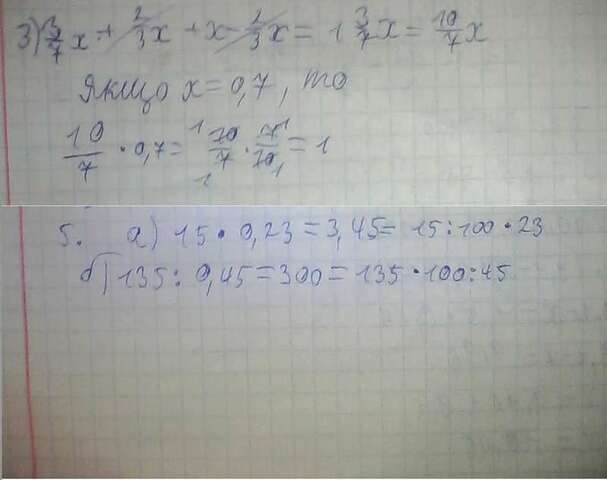 3) 3/7 x + 2/3 x + x - 2/3 x = 1 3/7 x = 10/7 x
Якщо x = 0,7, то
10/7 · 0,7 = 10/7 · 7/10 = 1
5. а) 15 · 0,23 = 3,45 = 15 : 100 · 23
б) 135 : 0,45 = 300 = 135 · 100 : 45